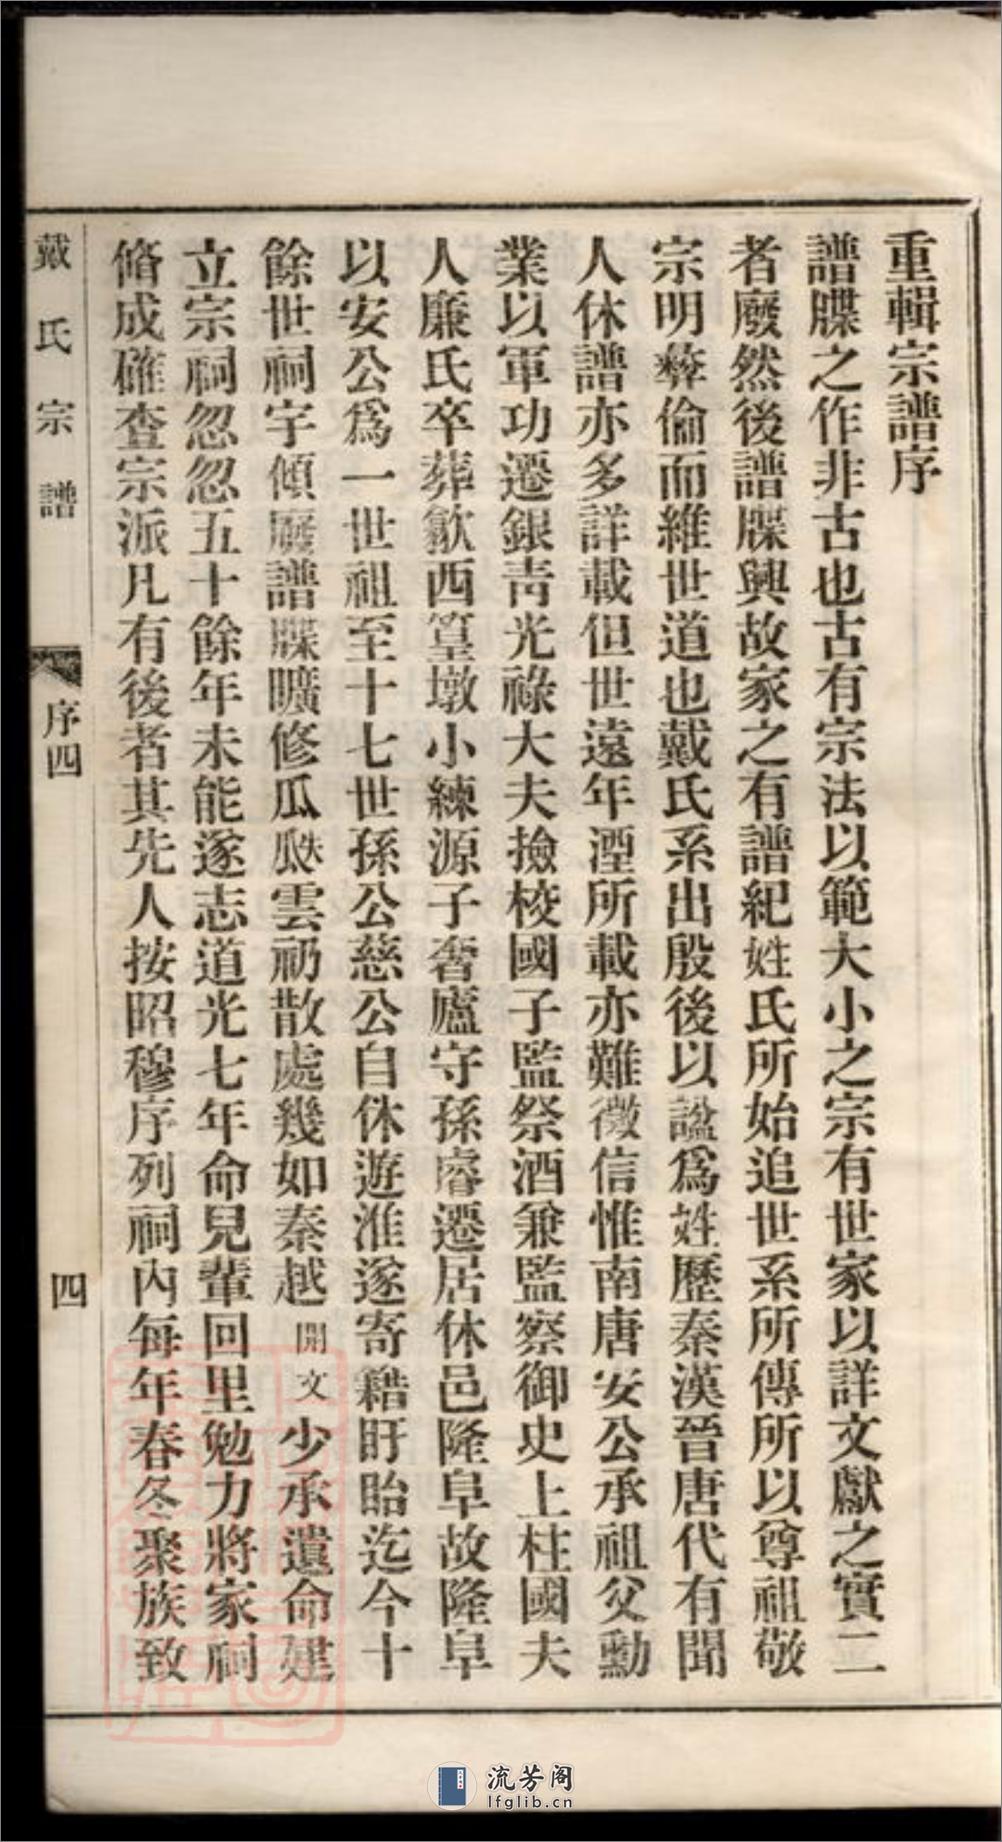 重輯宗譜序
譜牒之作非古也古有宗法以範大小之宗有世家以詳文獻之實二
者廢然後譜牒興故家之有譜紀姓氏所始追世系所傳所以尊祖敬
宗明彝倫而維世道也戴氏系出殷後以諡爲姓歷秦漢晉唐代有聞
人休譜亦多詳載但世遠年湮所載亦難徵信惟南唐安公承祖父勳
業以軍功遷銀青光祿大夫撿校國子監祭酒兼監察御史上柱國夫
人廉氏卒葬歙西篁墩小練源子奢廬守孫睿遷居休邑隆阜故隆阜
以安公爲一世祖至十七世孫公慈公自休遊淮遂寄籍盱眙迄今十
餘世祠宇傾廢譜牒曠修瓜瓞雲礽散處幾如秦越開文少承遺命建
立宗祠忽忽五十餘年未能遂志道光七年命兒輩回里勉力將家祠
脩成確查宗派凡有後者其先人按昭穆序列祠內每年春冬聚族致
戴氏宗譜
序四
四
流芳阁
lfglib.cn